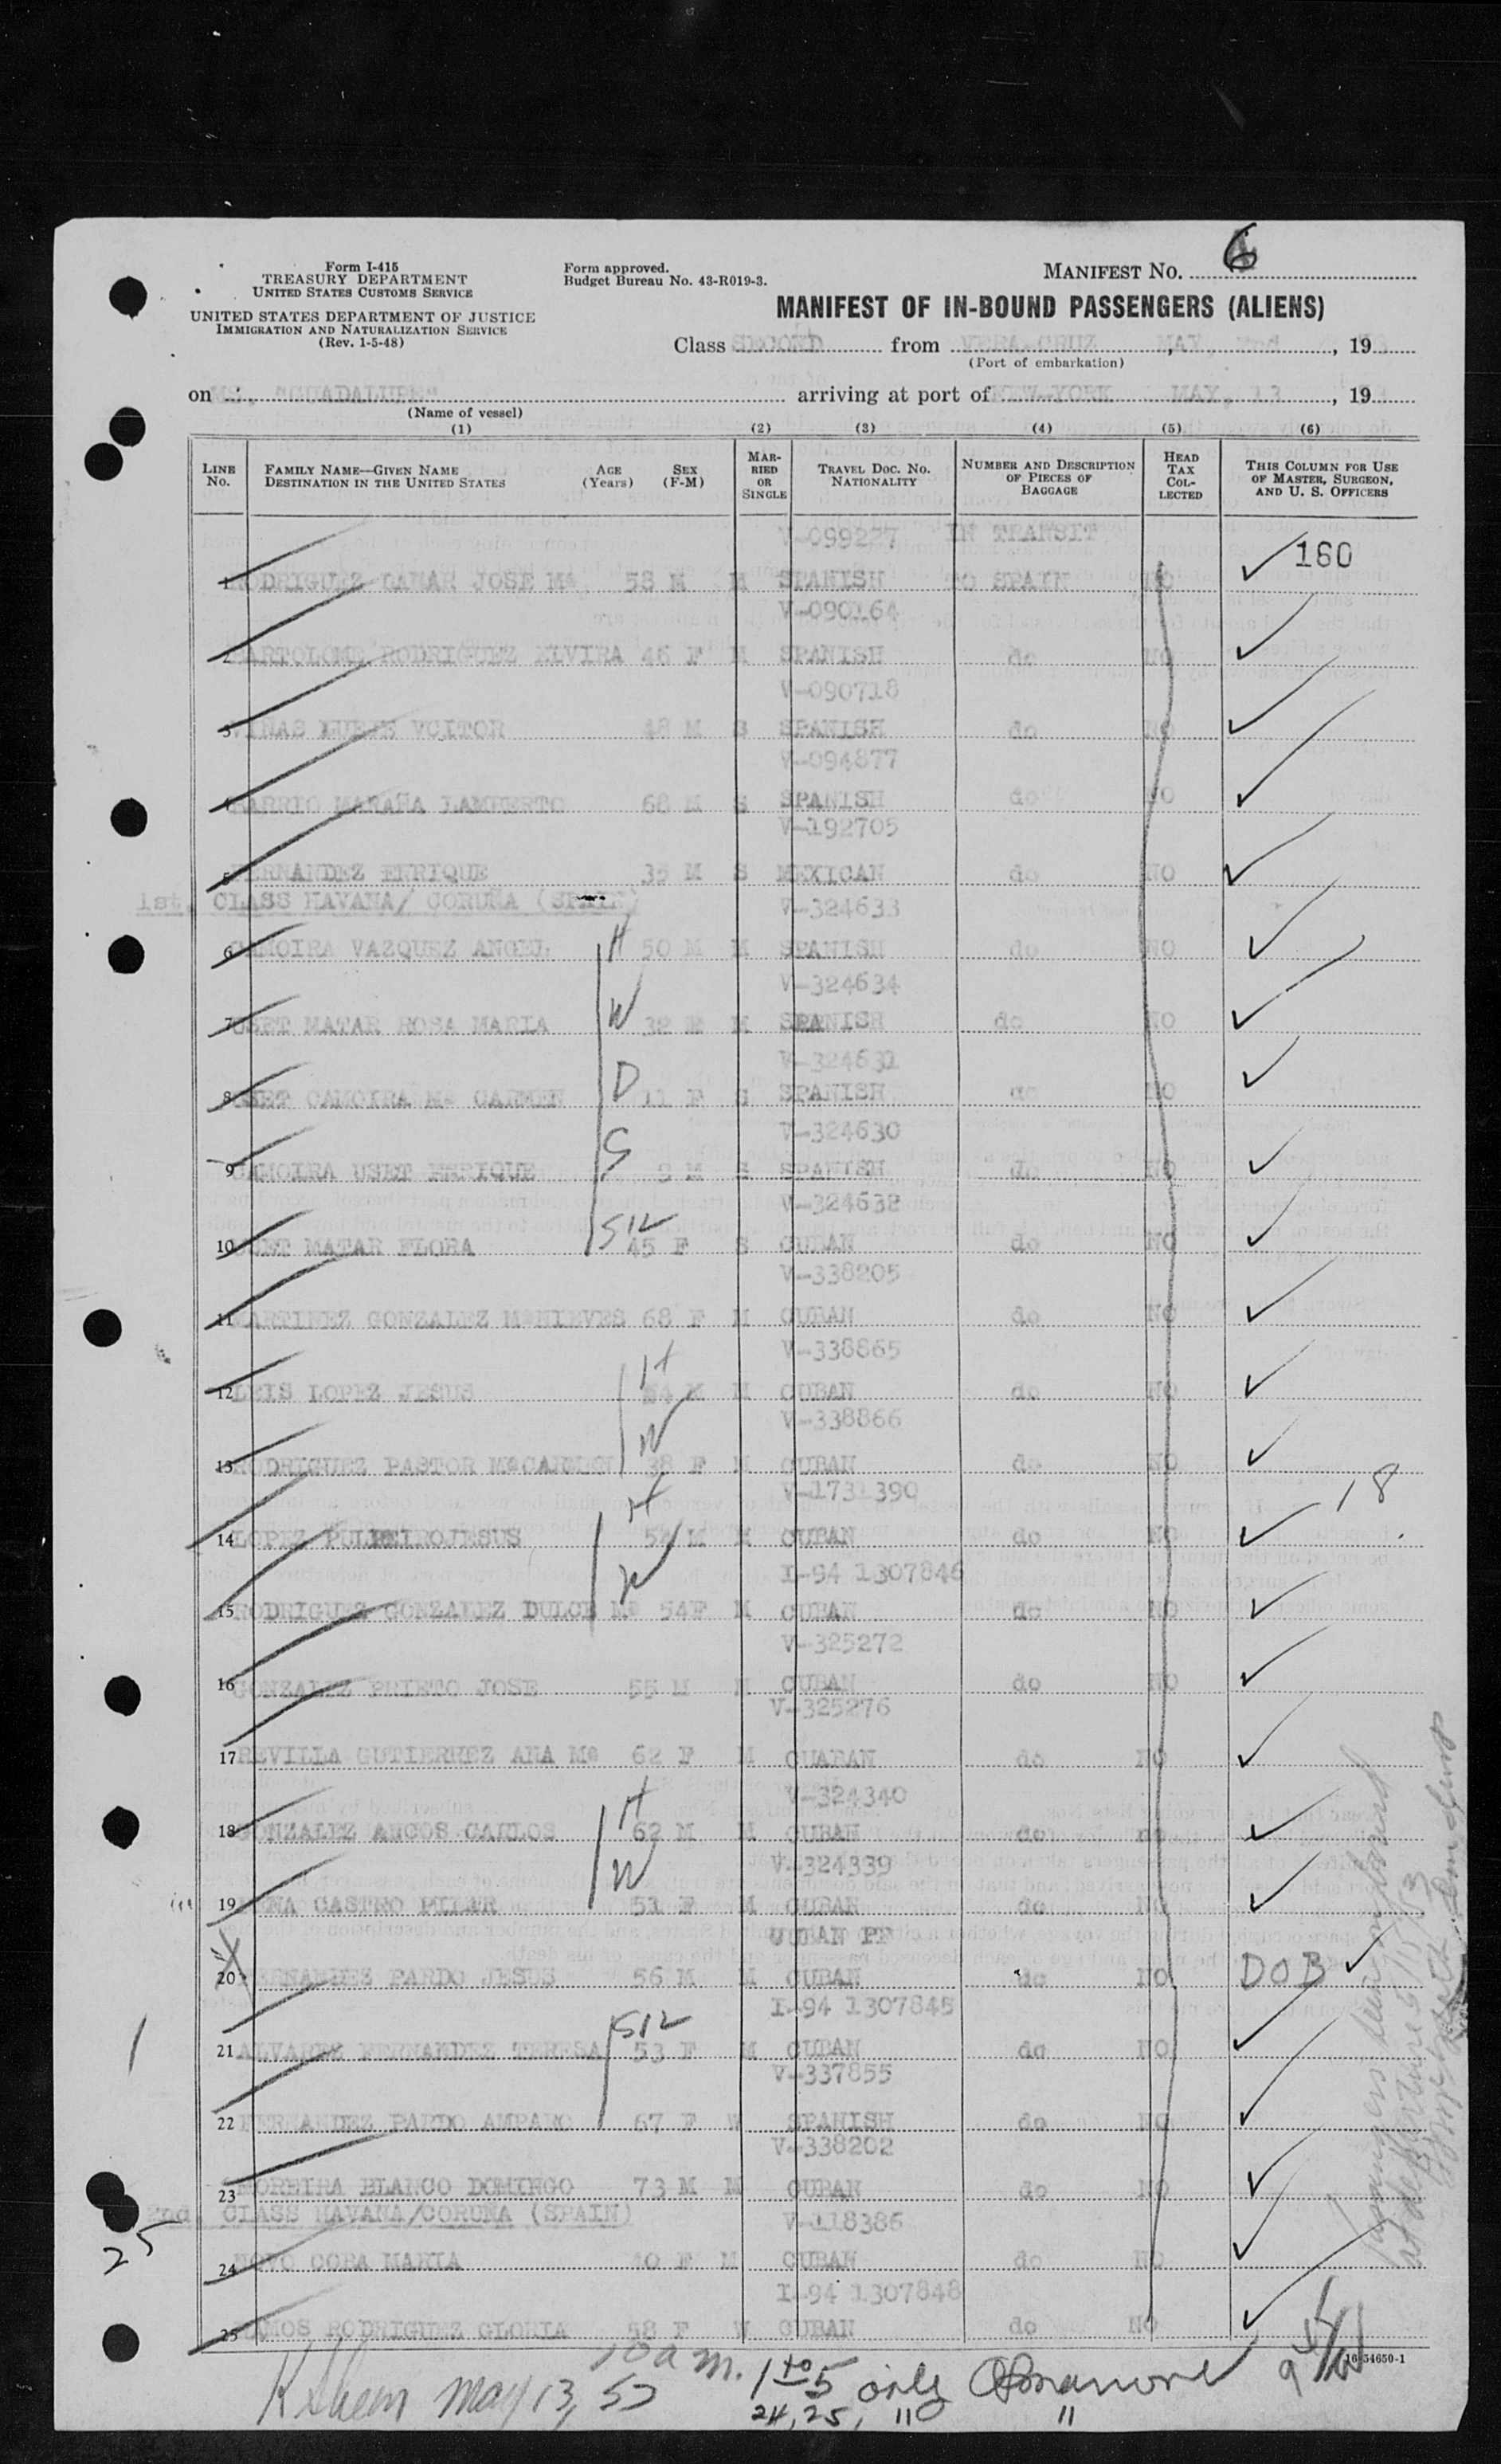 6
Form I-415
TREASURY DEPARTMENT
UNITED STATES CUSTOMS SERVICE
UNITED STATES DEPARTMENT OF JUSTICE
IMMIGRATION AND NATURALIZATION SERVICE
(Rev. 1-5-48)
Form approved.
Budget Bureau No. 43-R019-3.
MANIFEST NO.
MANIFEST OF IN-BOUND PASSENGERS (ALIENS)
Class SECOND from VERA-CRUZ MAY, 2nd, 19
(Port of embarkation)
on MS. "GUADALUPE" arriving at port of NEW-YORK MAY, 13, 19
(Name of vessel)
(1) (2) (3) (4) (5) (6)
LINE NO. FAMILY NAME—GIVEN NAME DESTINATION IN THE UNITED STATES AGE (Years) SEX (F-M) MARRIED OR SINGLE TRAVEL DOC. NO. NATIONALITY NUMBER AND DESCRIPTION OF PIECES OF BAGGAGE HEAD TAX COLLECTED THIS COLUMN FOR USE OF MASTER, SURGEON, AND U. S. OFFICERS
V-099227 IN TRANSIT
1 RODRIGUEZ CAMAR JOSE Mª 58 M M SPANISH TO SPAIN NO 160
V-090164
2 BARTOLOME RODRIGUEZ ELVIRA 46 F M SPANISH do NO
V-090718
3 VIÑAS VCITOR 48 M S SPANISH do NO
V-094877
4 BARRIO MARAÑA LAMBERTO 68 M S SPANISH do NO
V-192705
5 FERNANDEZ ENRIQUE 35 M S MEXICAN do NO
1st. CLASS HAVANA/ CORUÑA (SPAIN)
V-324633
6 CAMOIRA VAZQUEZ ANGEL H 50 M M SPANISH do NO
V-324634
7 USET MATAR ROSA MARIA W 32 F M SPANISH do NO
V-324631
8 USET CAMOIRA Mª CARMEN D 11 F S SPANISH do NO
V-324630
9 CAMOIRA USET ENRIQUE S 9 M S SPANISH do NO
V-324632
10 USET MATAR FLORA 45 F S CUBAN do NO
V-338205
11 MARTINEZ GONZALEZ MªNIEVES 68 F M CUBAN do NO
V-338865
12 LEIS LOPEZ JESUS H 54 M M CUBAN do NO
V-338866
13 RODRIGUEZ PASTOR MªCARMEN W 38 F M CUBAN do NO
V-1731390
14 LOPEZ JESUS H 54 M M CUBAN do NO 18
I-94 1307846
15 RODRIGUEZ GONZALEZ DULCE Mª W 54F M CUBAN do NO
V-325272
16 GONZALEZ PRIETO JOSE 55 M M CUBAN do NO
V-325276
17 REVILLA GUTIERREZ ANA Mª 62 F M CUABAN do NO
V-324340
18 GONZALEZ ARCOS CARLOS H 62 M M CUBAN do NO
V-324339
19 CASTRO W 51 F M CUBAN do NO
CUBAN PP
20 FERNANDEZ PARDO JESUS 56 M M CUBAN do NO DOB
I-94 1307845
21 ALVAREZ FERNANDEZ TERESA 53 F M CUBAN do NO
V-337855
22 FERNANDEZ PARDO AMPARO 67 F W SPANISH do NO
V-338202
23 MOREIRA BLANCO DOMINGO 73 M M CUBAN do NO
2nd. CLASS HAVANA/CORUÑA (SPAIN)
V-118386
24 COBA MARIA 40 F M CUBAN do NO
I-94 1307848
25 RAMOS RODRIGUEZ GLORIA 58 F W CUBAN do NO
1
25
16-54650-1
10 a m. 1 to 5 only
May 13, 53
24, 25, " "